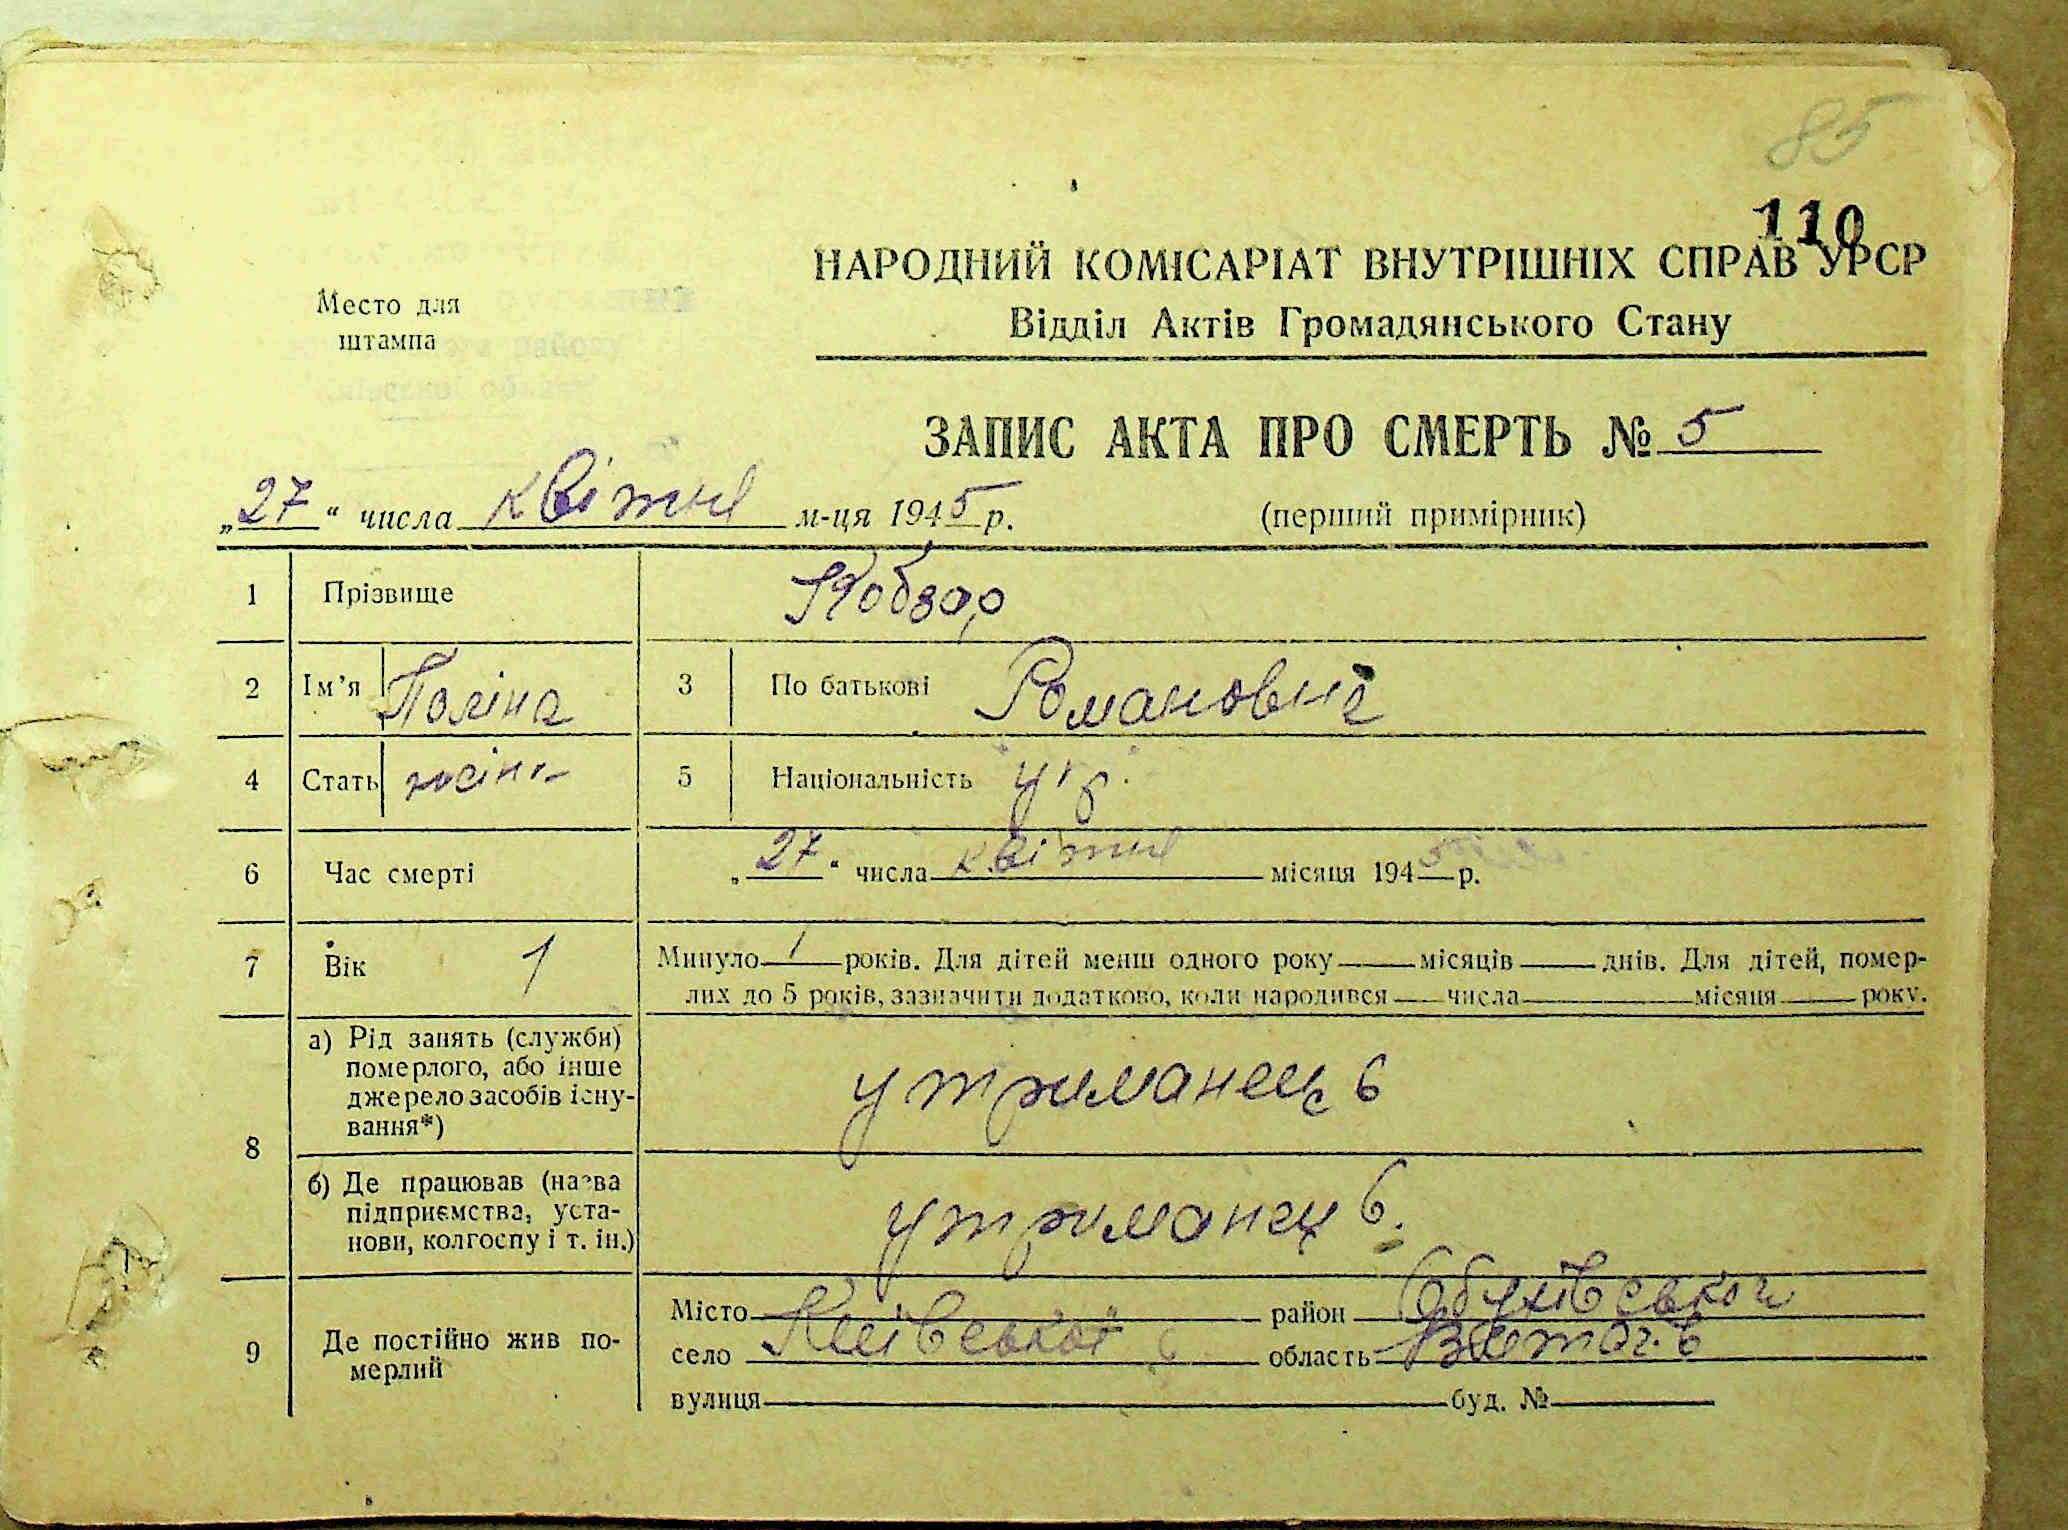 85
110
НАРОДНИЙ КОМІСАРІАТ ВНУТРІШНІХ СПРАВ УРСР
Место для
штампа
Відділ Актів Громадянського Стану
ЗАПИС АКТА ПРО СМЕРТЬ № 5
„27“ числа квітня м-ця 1945 р. (перший примірник)
1 Прізвище Кобзар
2 Ім’я Поліна 3 По батькові Романовна
4 Стать жіно 5 Національність укр.
6 Час смерті „27“ числа квітня місяця 1945 р.
7 Вік 1 Минуло 1 років. Для дітей менш одного року місяців днів. Для дітей, помер-
лих до 5 років, зазначити додатково, коли народився числа місяця року.
8 а) Рід занять (служби)
померлого, або інше
джерело засобів існу-
вання*)
утриманець
б) Де працював (назва
підприємства, уста-
нови, колгоспу і т. ін.)
утриманець.
9 Де постійно жив по-
мерлий
Місто район Обухівської
село Київської область
вулиця буд. №